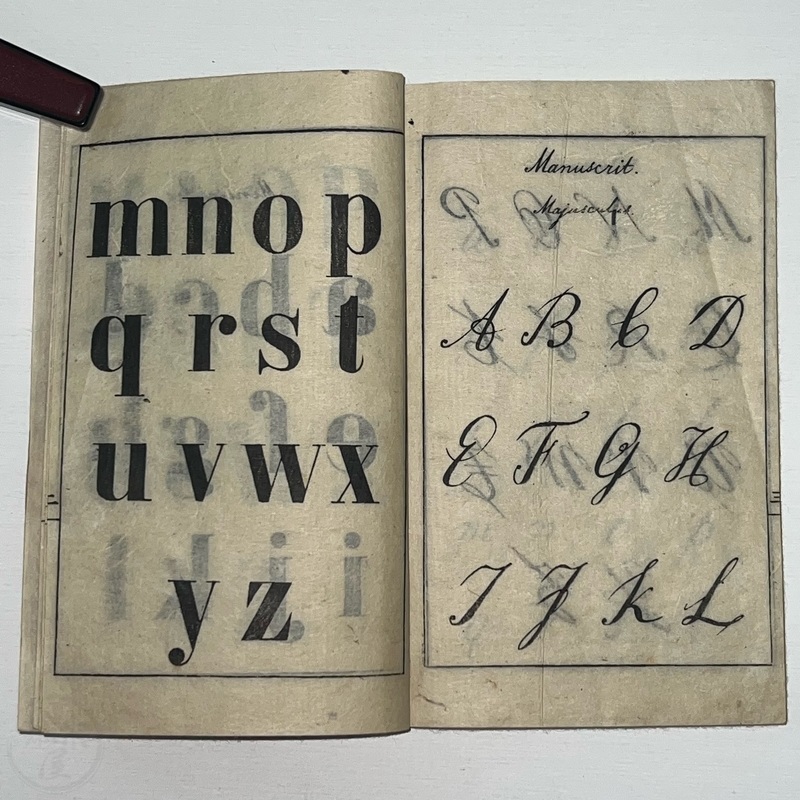 m n o p
q r s t
u v w x
y z
Manuscrit.
Majusculus.
A B C D
E F G H
I J K L